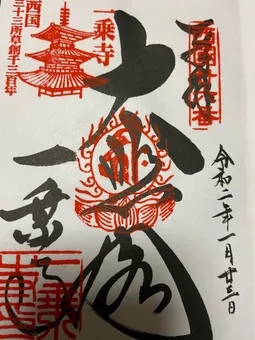 西国廿六番
令和二年一月廿三日
大悲閣
一乗寺
一乗寺
西国
三十三所草創千三百年